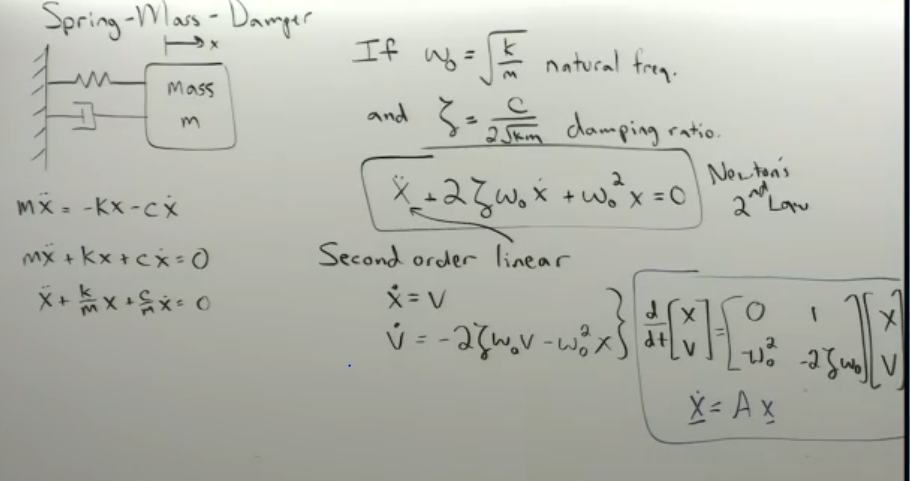 Spring-Mass-Damper
x
Mass
m
mẍ = -Kx - cẋ
mẍ + Kx + cẋ = 0
ẍ + k/m x + c/m ẋ = 0
If ω₀ = √(k/m) natural freq.
and ζ = c/(2√km) damping ratio.
ẍ + 2ζω₀ẋ + ω₀²x = 0
Newton's
2nd Law
Second order linear
ẋ = v
v̇ = -2ζω₀v - ω₀²x
d/dt [x v] = [0 1 -ω₀² -2ζω₀] [x v]
ẋ = A x